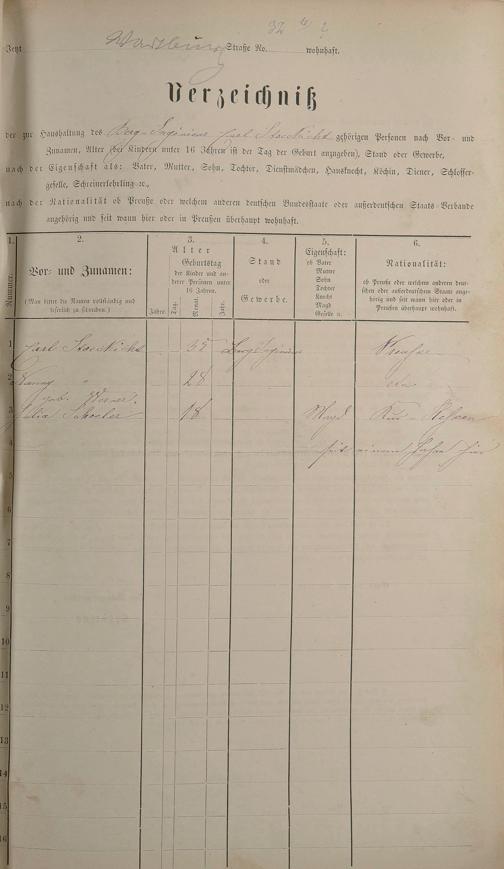 32
Jetzt Straße No. wohnhaft.
Verzeichniß
der zur Haushaltung des Berg-Ingenieur Carl gehörigen Personen nach Vor- und
Zunamen, Alter (bei Kindern unter 16 Jahren ist der Tag der Geburt anzugeben), Stand oder Gewerbe,
nach der Eigenschaft als: Vater, Mutter, Sohn, Tochter, Dienstmädchen, Hausknecht, Köchin, Diener, Schlosser-
geselle, Schreinerlehrling ꝛc.,
nach der Nationalität ob Preuße oder welchem anderen deutschen Bundesstaate oder außerdeutschen Staats-Verbande
angehörig und seit wann hier oder in Preußen überhaupt wohnhaft.
1. 2. 3. 4. 5. 6.
Nummer.
Vor- und Zunamen:
(Man bittet die Namen vollständig und
leserlich zu schreiben.)
Alter
Geburtstag
der Kinder und an-
derer Personen unter
16 Jahren.
Jahre. Tag. Monat. Jahr.
Stand
oder
Gewerbe.
Eigenschaft:
ob Vater
Mutter
Sohn
Tochter
Knecht
Magd
Geselle ꝛc.
Nationalität:
ob Preuße oder welchem anderen deut-
schen oder außerdeutschen Staate ange-
hörig und seit wann hier oder in
Preußen überhaupt wohnhaft.
1 Carl 35 Bergingenieur Preuße
2 " 28
geb. Werner.
3 18 Magd Kur-Hessen
4 seit einem Jahre hier
5
6
7
8
9
10
11
12
13
14
15
16